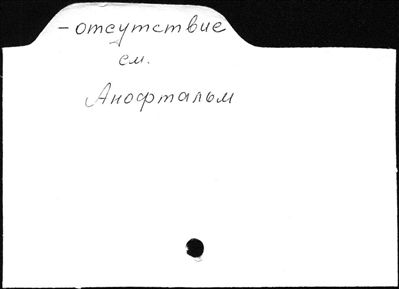 -отсутствие
см.
Анофтальм